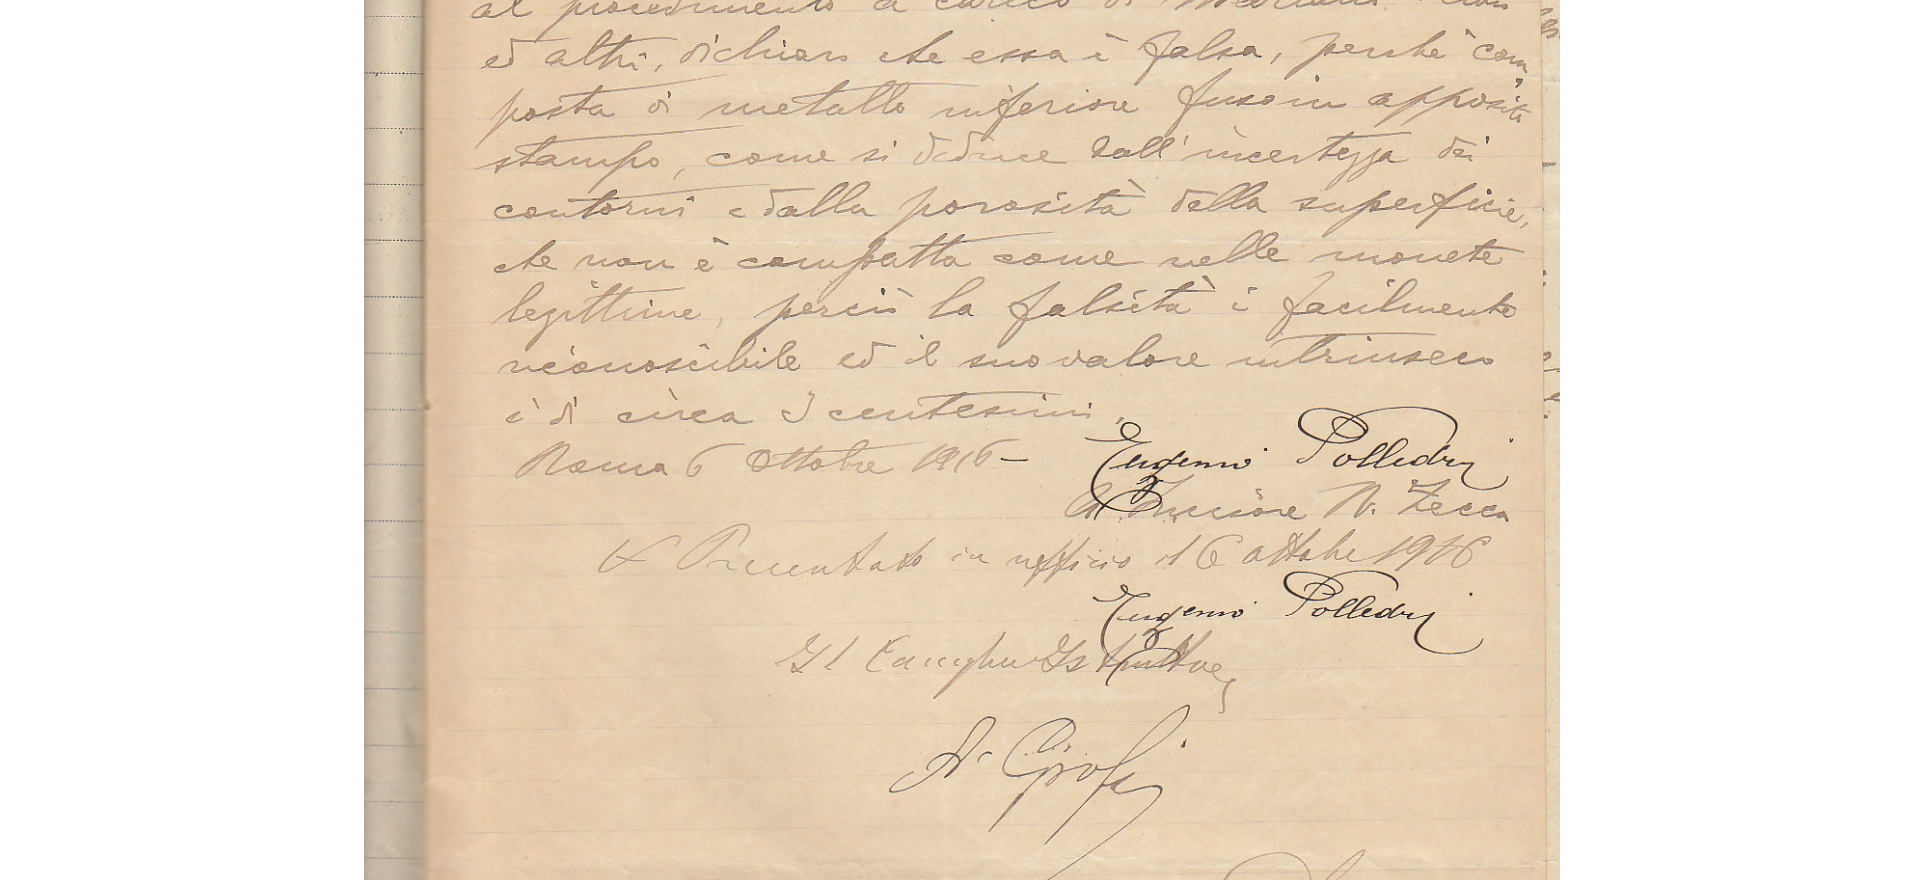 al procedimento a carico di Mariani
ed altri, dichiaro che essa è falsa, perchè com
posta di metallo inferiore fuso in apposito
stampo, come si deduce dall'incertezza dei
contorni e dalla porosità della superficie,
che non è compatta come nelle monete
legittime, perciò la falsità è facilmente
riconoscibile ed il suo valore intrinseco
è di circa 3 centesimi.
Roma 6 Ottobre 1916 — Eugenio Polledri
Incisore R. Zecca
Presentato in ufficio il 6 ottobre 1916
Eugenio Polledri
Il Consigliere Istruttore